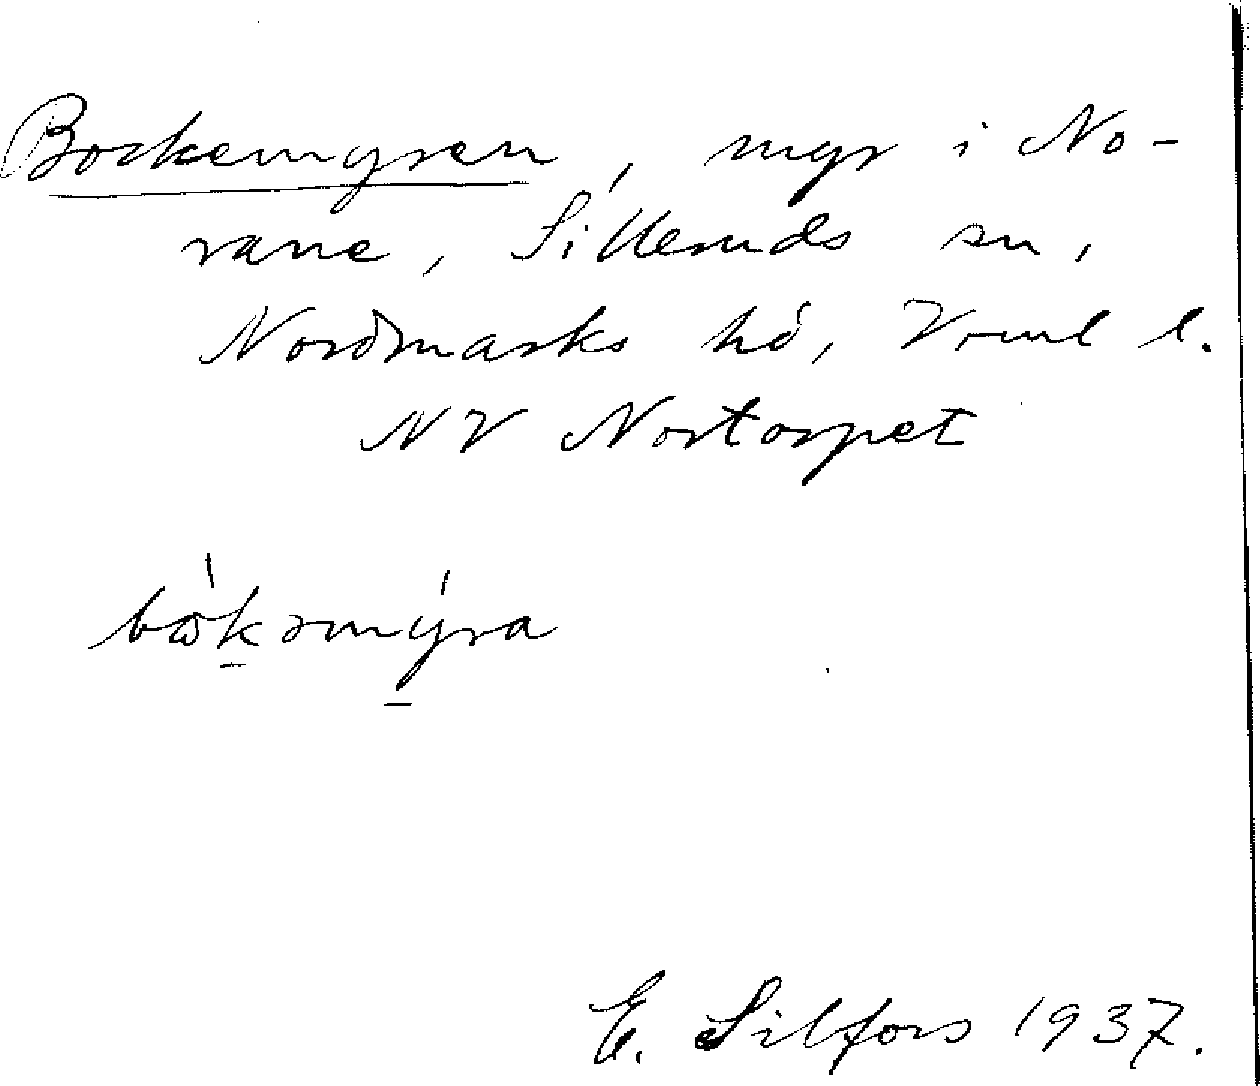 Bockemyren, myr i No-
rane, Silleruds sn,
Nordmarks hd, Vrml l.
NV Nortorpet
bòkəmýra
E. Silfors 1937.